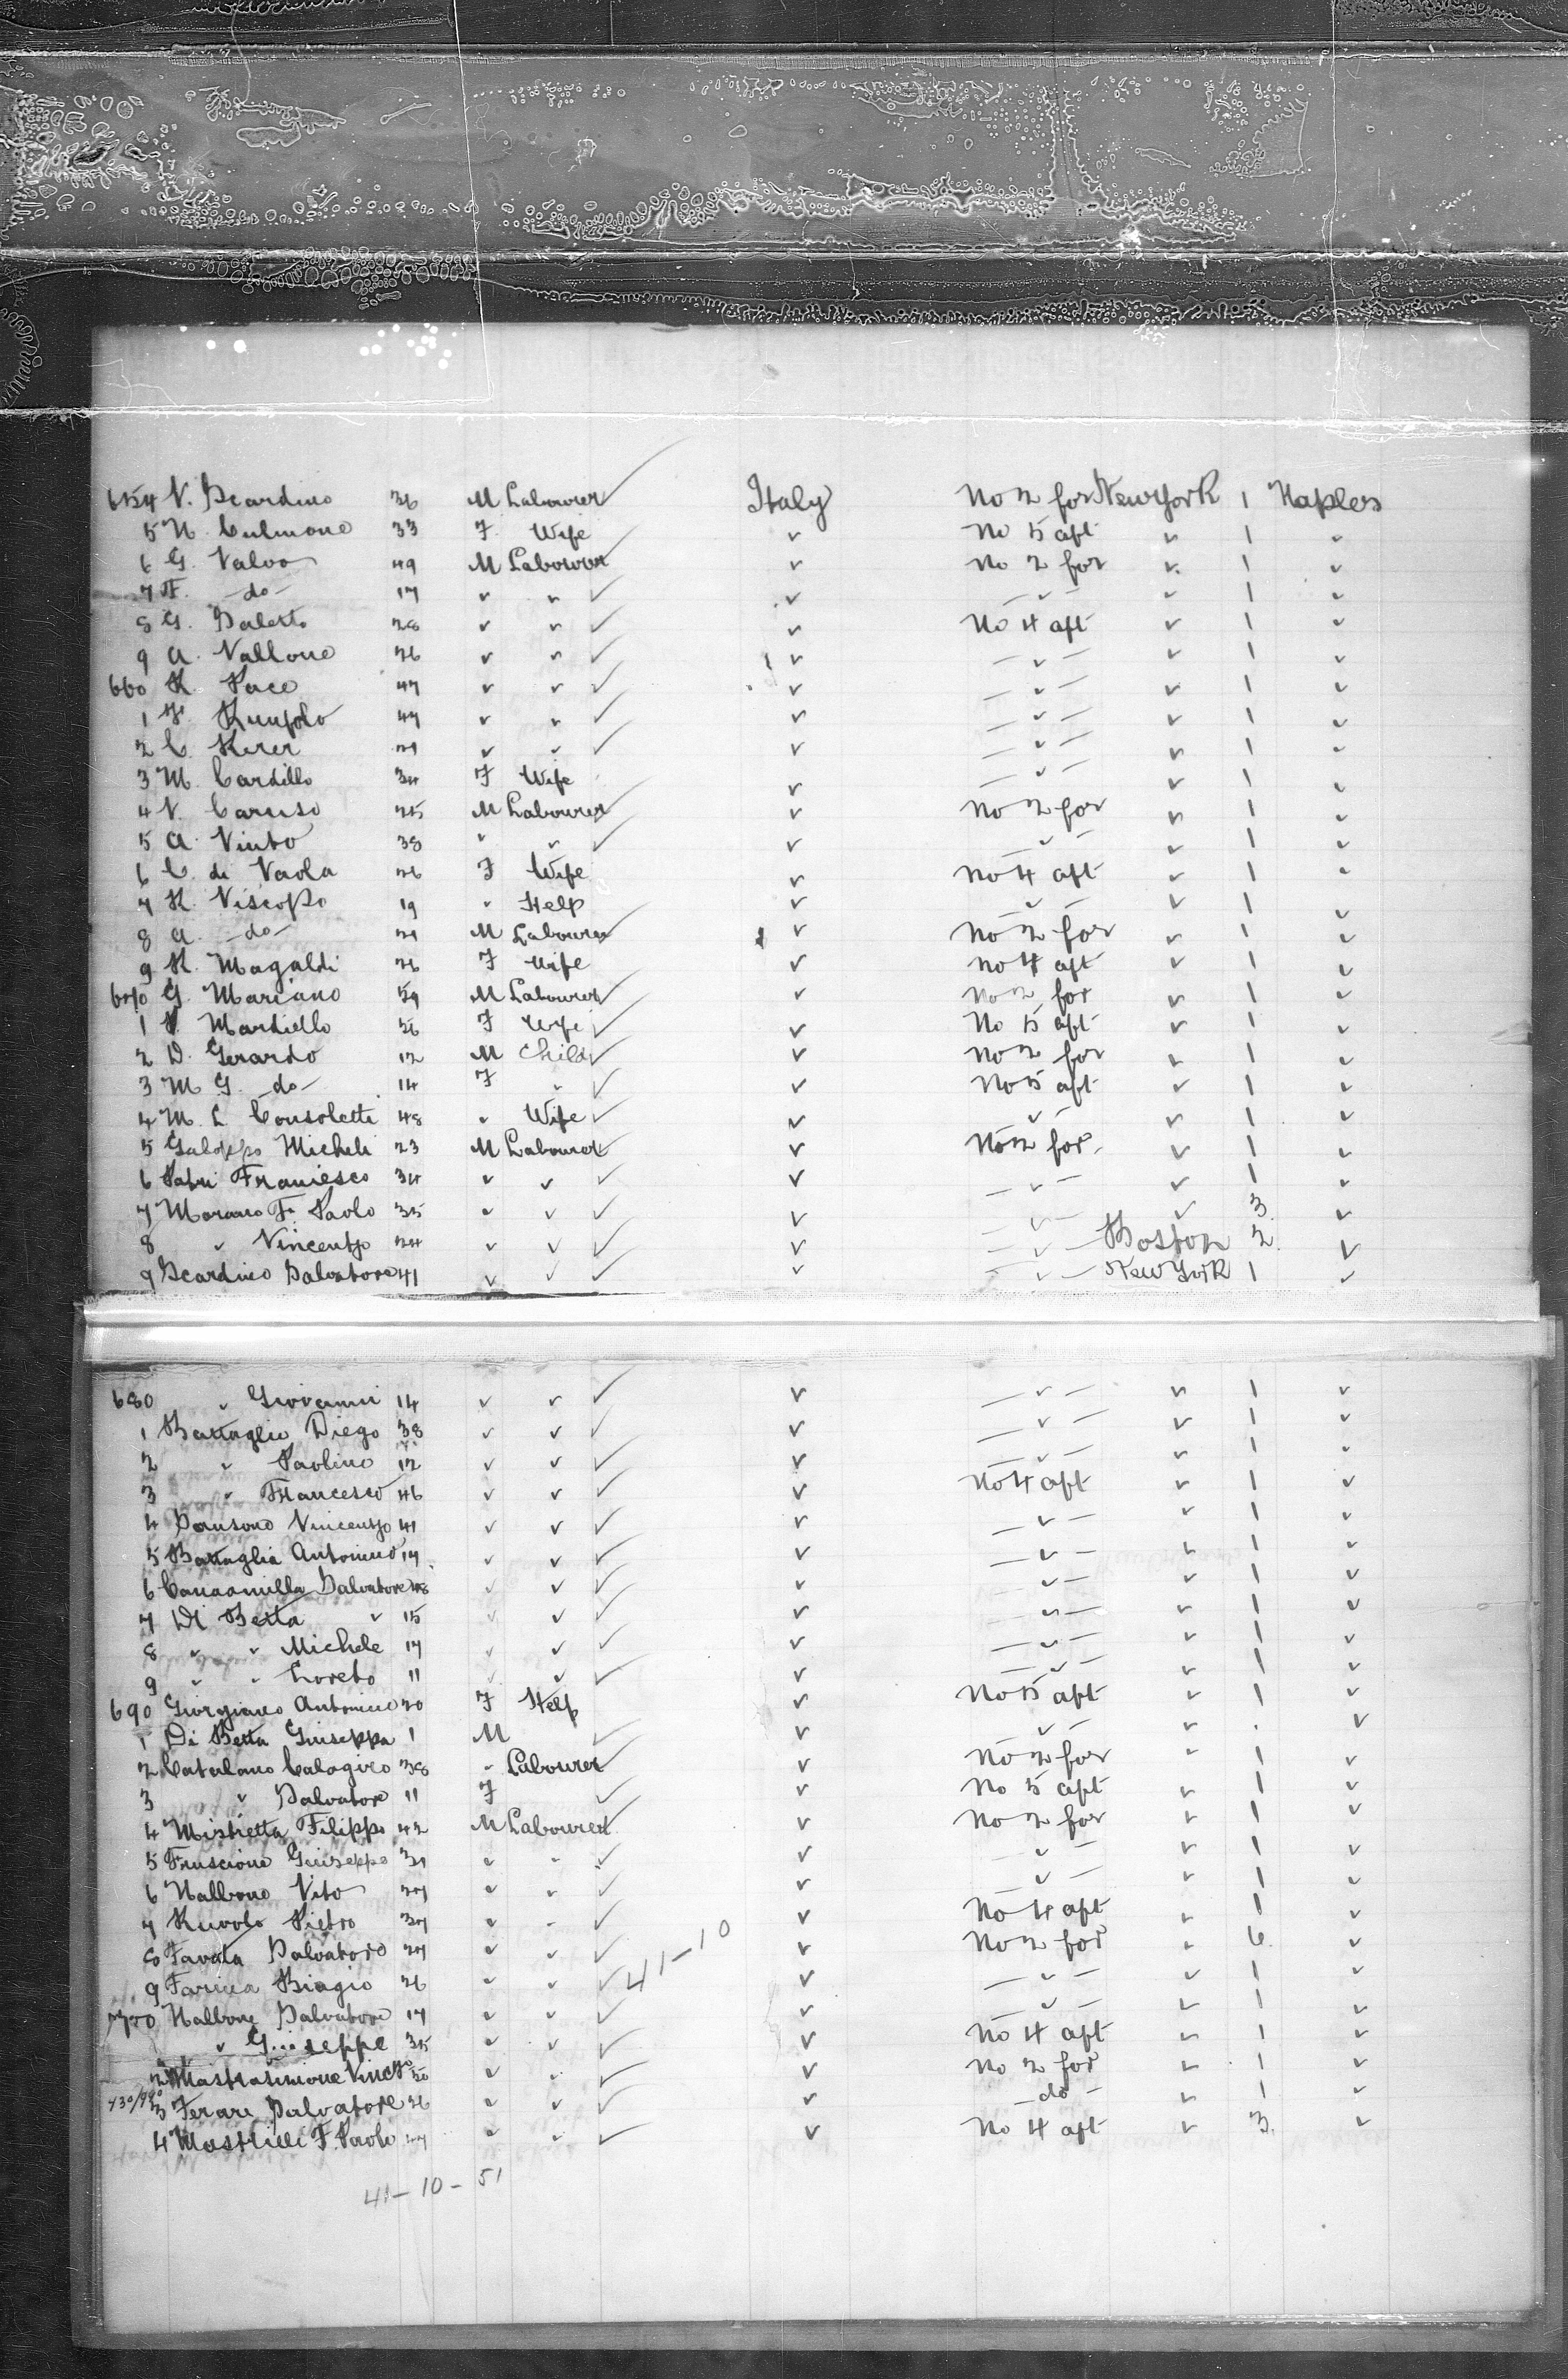 654 V. Scardino 36 M Labourer Italy No 2 for New York 1 Naples
5 N. Culmone 33 F. Wife " No 5 aft " 1 "
6 G. Valvo 49 M Labourer " No 2 for " 1 "
7 F. -do- 17 " " " - " - " 1 "
8 G. Salerto 28 " " " No 4 aft " 1 "
9 A. Vallone 26 " " " - " - " 1 "
660 R. Pace 47 " " " - " - " 1 "
1 47 " " " - " - " 1 "
2 C. 29 " " " - " - " 1 "
3 M. Cardillo 34 F Wife " - " - " 1 "
4 V. Caruso 25 M Labourer " No 2 for " 1 "
5 A. Vinto 38 " " " - " - " 1 "
6 C. di Vaola 26 F Wife " No 4 aft " 1 "
7 R. Viscopo 19 " Help " - " - " 1 "
8 A. -do- 21 M Labourer " No 2 for " 1 "
9 R. Magaldi 26 F Wife " No 4 aft " 1 "
670 G. Mariano 59 M Labourer " No 2 for " 1 "
1 Mardiello 56 F Wife " No 5 aft " 1 "
2 D. Gerardo 12 M Child " No 2 for " 1 "
3 M G. -do- 14 F " " No 5 aft " 1 "
4 M. L Consoletti 48 " Wife " " - " 1 "
5 Galoppo Micheli 23 M Labourer " No 2 for. " 1 "
6 Patri Franiesco 34 " " " - " - " 1 "
7 Morano F. Paolo 35 " " " - " - " 3 "
8 " Vincenzo 24 " " " - " - Boston 2 "
9 Scardino Salvatore 41 " " " - " - New York 1 "
680 " Giovanni 14 " " " - " - " 1 "
1 Battaglia Diego 38 " " " - " - " 1 "
2 " Paolino 12 " " " - " - " 1 "
3 " Francesco 46 " " " No 4 aft " 1 "
4 Sansone Vincenzo 41 " " " - " - " 1 "
5 Battaglia Antonino 17 " " " - " - " 1 "
6 Salvatore 48 " " " - " - " 1 "
7 Di Betta " 15 " " " - " - " 1 "
8 " " Michele 17 " " " - " - " 1 "
9 " " Loreto 11 " " " - " - " 1 "
690 Giorgiano Antonino 20 F Help " No 5 aft " 1 "
1 Di Betta Giuseppa 1 M " " - " . "
2 Catalano Calogiro 38 " Labourer " No 2 for " 1 "
3 " Salvatore 11 F " No 5 aft " 1 "
4 Mistretta Filippo 42 M Labourer " No 2 for " 1 "
5 Fruscione Giuseppe 31 " " " - " - " 1 "
6 Nalbone Vito 27 " " " - " - " 1 "
7 Ruvolo Pietro 37 " " " No 4 aft " 1 "
8 Favata Salvatore 27 " " 41-10 " No 2 for " 6 "
9 Farina Biagio 26 " " " - " - " 1 "
700 Nalbone Salvatore 17 " " " - " - " 1 "
" G...seppe 35 " " " No 4 aft " 1 "
2 Mastrasimone Vinc 50 " " " No 2 for " 1 "
3 Ferare Salvatore 26 " " " do - " 1 "
4 Mastrilli F. Paolo 27 " " " No 4 aft " 3 "
41-10-51